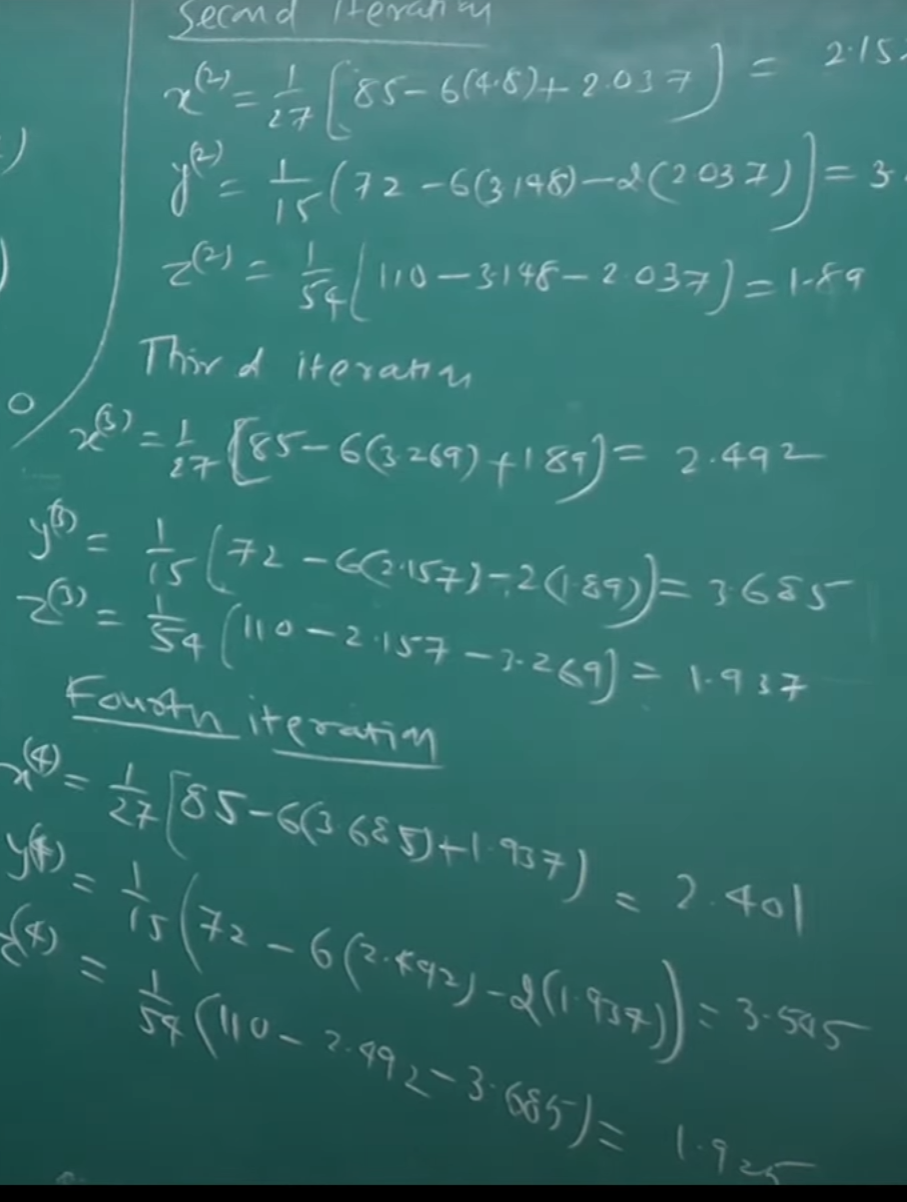 Second iteration
x^(2) = 1/27 [85 - 6(4.8) + 2.037) = 2.15
y^(2) = 1/15 (72 - 6(3.148) - 2(2.037)) = 3.
z^(2) = 1/54 (110 - 3.148 - 2.037) = 1.89
Third iteration
x^(3) = 1/27 [85 - 6(3.269) + 1.89) = 2.492
y^(3) = 1/15 (72 - 6(2.157) - 2(1.89)) = 3.685
z^(3) = 1/54 (110 - 2.157 - 3.269) = 1.937
Fourth iteration
x^(4) = 1/27 [85 - 6(3.685) + 1.937) = 2.401
y^(4) = 1/15 (72 - 6(2.492) - 2(1.937)) = 3.545
z^(4) = 1/54 (110 - 2.492 - 3.685) = 1.925